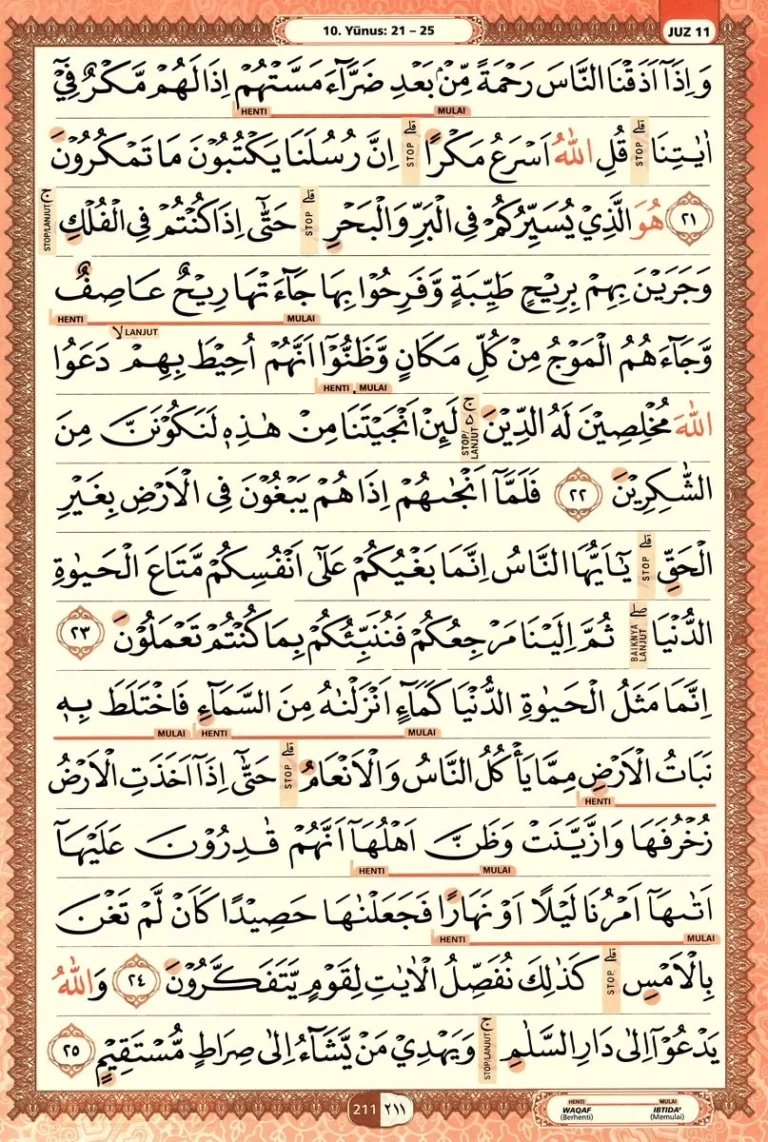 10. Yūnus: 21 – 25
JUZ 11
وَاِذَآ اَذَقْنَا النَّاسَ رَحْمَةً مِّنْۢ بَعْدِ ضَرَّاۤءَ مَسَّتْهُمْ اِذَا لَهُمْ مَّكْرٌ فِيْٓ
HENTI MULAI
اٰيٰتِنَا ۗ قُلِ اللّٰهُ اَسْرَعُ مَكْرًا ۗ اِنَّ رُسُلَنَا يَكْتُبُوْنَ مَا تَمْكُرُوْنَ
STOP STOP
٢١ هُوَ الَّذِيْ يُسَيِّرُكُمْ فِى الْبَرِّ وَالْبَحْرِ ۗ حَتّٰٓى اِذَا كُنْتُمْ فِى الْفُلْكِ ۚ
STOP STOP/LANJUT
وَجَرَيْنَ بِهِمْ بِرِيْحٍ طَيِّبَةٍ وَّفَرِحُوْا بِهَا جَاۤءَتْهَا رِيْحٌ عَاصِفٌ
HENTI MULAI
LANJUT
وَّجَاۤءَهُمُ الْمَوْجُ مِنْ كُلِّ مَكَانٍ وَّظَنُّوْٓا اَنَّهُمْ اُحِيْطَ بِهِمْ ۙ دَعَوُا
HENTI MULAI
اللّٰهَ مُخْلِصِيْنَ لَهُ الدِّيْنَ ەۚ لَىِٕنْ اَنْجَيْتَنَا مِنْ هٰذِهٖ لَنَكُوْنَنَّ مِنَ
STOP/LANJUT
الشّٰكِرِيْنَ ٢٢ فَلَمَّآ اَنْجٰىهُمْ اِذَا هُمْ يَبْغُوْنَ فِى الْاَرْضِ بِغَيْرِ
الْحَقِّ ۗ يٰٓاَيُّهَا النَّاسُ اِنَّمَا بَغْيُكُمْ عَلٰٓى اَنْفُسِكُمْ مَّتَاعَ الْحَيٰوةِ
STOP
الدُّنْيَا ۖ ثُمَّ اِلَيْنَا مَرْجِعُكُمْ فَنُنَبِّئُكُمْ بِمَا كُنْتُمْ تَعْمَلُوْنَ ٢٣
BAIKNYA LANJUT
اِنَّمَا مَثَلُ الْحَيٰوةِ الدُّنْيَا كَمَاۤءٍ اَنْزَلْنٰهُ مِنَ السَّمَاۤءِ فَاخْتَلَطَ بِهٖ
MULAI HENTI MULAI
نَبَاتُ الْاَرْضِ مِمَّا يَأْكُلُ النَّاسُ وَالْاَنْعَامُ ۗ حَتّٰٓى اِذَآ اَخَذَتِ الْاَرْضُ
HENTI STOP
زُخْرُفَهَا وَازَّيَّنَتْ وَظَنَّ اَهْلُهَآ اَنَّهُمْ قٰدِرُوْنَ عَلَيْهَآ
HENTI MULAI
اَتٰىهَآ اَمْرُنَا لَيْلًا اَوْ نَهَارًا فَجَعَلْنٰهَا حَصِيْدًا كَاَنْ لَّمْ تَغْنَ
HENTI MULAI
بِالْاَمْسِ ۗ كَذٰلِكَ نُفَصِّلُ الْاٰيٰتِ لِقَوْمٍ يَّتَفَكَّرُوْنَ ٢٤ وَاللّٰهُ
STOP
يَدْعُوْٓا اِلٰى دَارِ السَّلٰمِ ۚ وَيَهْدِيْ مَنْ يَّشَاۤءُ اِلٰى صِرَاطٍ مُّسْتَقِيْمٍ ٢٥
STOP/LANJUT
211 ٢١١
HENTI MULAI
WAQAF IBTIDA'
(Berhenti) (Memulai)